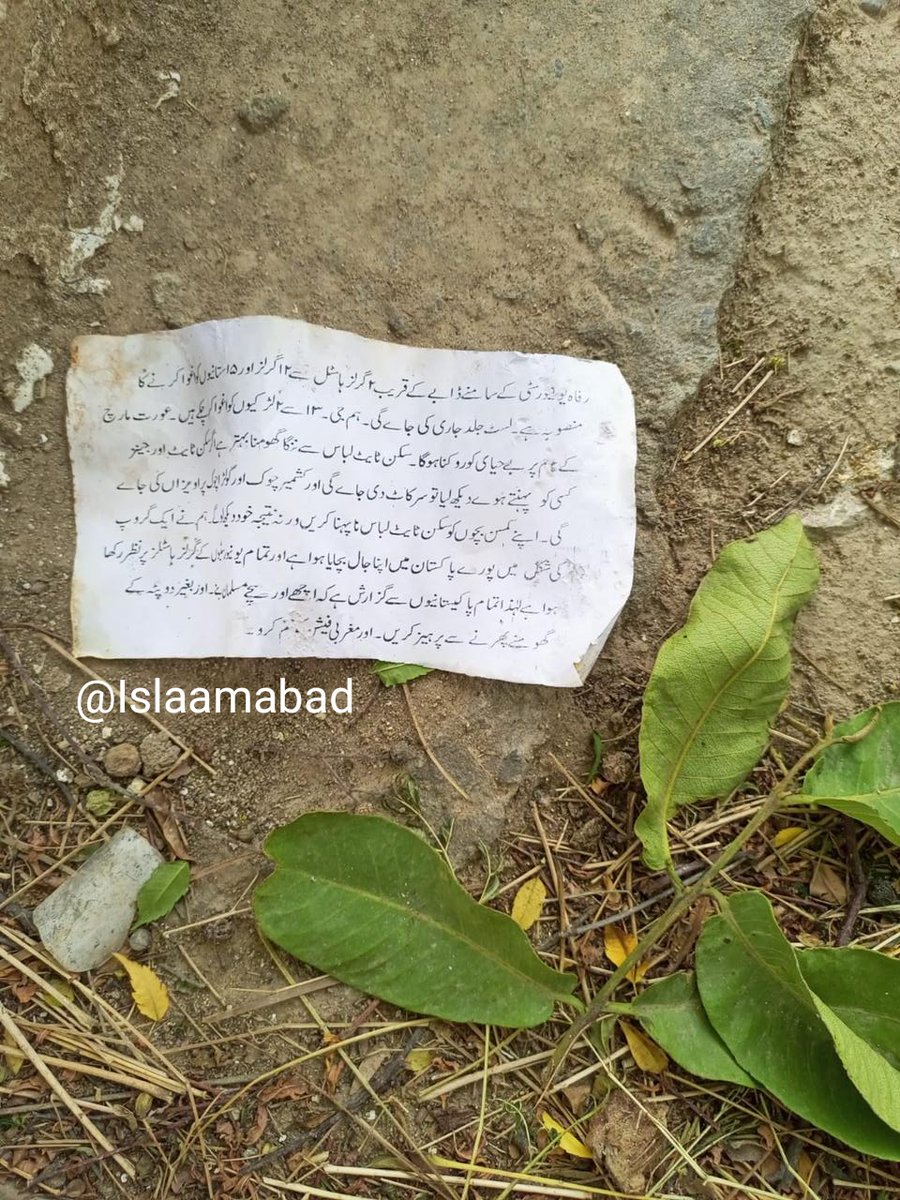 رفاہ یونیورسٹی کے سامنے ڈابے کے قریب ۲ گرلز ہاسٹل سے ۱۲ گرلز اور ۱۵ استانیوں کو اغوا کرنے کا
منصوبہ ہے۔ لسٹ جلد جاری کی جاے گی۔ ہم جی۔۱۳ سے ۲ لڑکیوں کو اغوا کر چکے ہیں۔ عورت مارچ
کے نام پر بے حیای کو روکنا ہوگا۔ سکن ٹایٹ لباس سے ننگا گھومنا بہتر ہے اگر سکن ٹایٹ اور جینز
کسی کو پہنتے ہوے دیکھ لیا تو سر کاٹ دی جاے گی اور کشمیر چوک اور گولڑا چوک پر اویزاں کی جاے
گی۔ اپنے کمسن بچوں کو سکن ٹایٹ لباس نا پہنا کریں ورنہ نتیجہ خود دیکھ لو۔ ہم نے ایک گروپ
کی شکل میں پورے پاکستان میں اپنا جال بچایا ہوا ہے اور تمام یونیورسٹیوں کے گرلز ہاسٹلز پر نظر رکھا
ہوا ہے لہٰذا تمام پاکیستانیوں سے گزارش ہے کہ اچھے اور سچے مسلمان بنے اور بغیر دوپٹہ کے
گھومنے پھرنے سے پرہیز کریں۔ اور مغربی فیشن ختم کرو۔
@Islaamabad